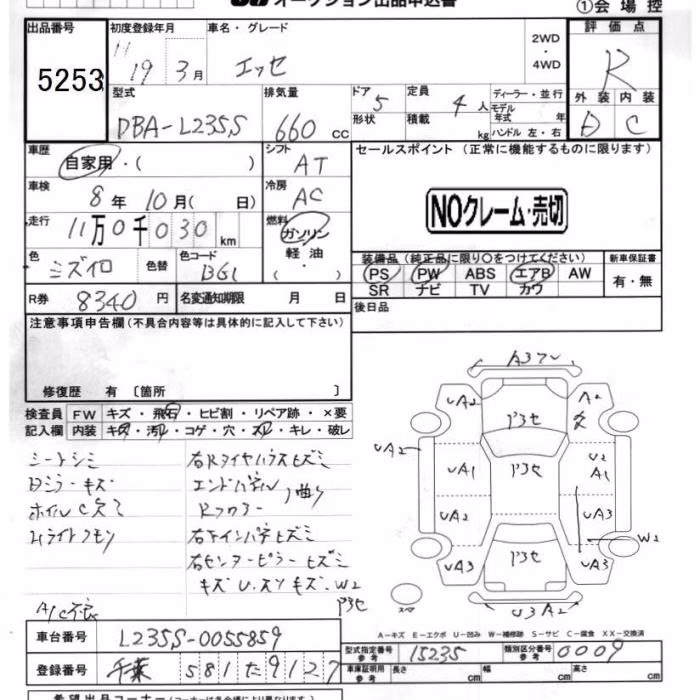 オークション出品申込書
①会場控
出品番号
5253
初度登録年月
19 3月
車名・グレード
エッセ
2WD
・
4WD
評価点
R
外装 内装
D C
型式
DBA-L235S
排気量
660 cc
ドア
5
形状
定員
4人
積載
kg
ディーラー・並行
モデル年式 年
ハンドル 左・右
車歴
自家用・( )
シフト
AT
セールスポイント (正常に機能するものに限ります)
NOクレーム・売切
車検
8年 10月( 日)
冷房
AC
走行
11万0千030km
燃料
ガソリン
軽油
( ・ )
色
ミズイロ
色替
色コード
B61
装備品 (純正品に限り○をつけてください)
PS PW ABS エアB AW
SR ナビ TV カワ
新車保証書
有・無
R券
8340円
名変通知期限 月 日
後日品
注意事項申告欄(不具合内容等は具体的に記入して下さい)
修復歴 有 〔箇所 〕
検査員 FW キズ・飛石・ヒビ割・リペア跡・×要
記入欄 内装 キズ・汚れ・コゲ・穴・スレ・キレ・破レ
シートシミ
Dミラーキズ
ホイルCキズミ
Hライトクモリ
A/C不良
右Rタイヤハウスヒズミ
エンドパネル
Rフロアー
曲り
右Fインパネヒズミ
右センターピラーヒズミ
キズ U.スリキズ.W2
アコセ
A3ワレ
UA2
A2
アコセ
UA2
UA1
アコセ
U2
A1
UA2
W2
UA3
アコセ
UA3
スペ
U3A2
A-キズ E-エクボ U-凹み W-補修跡 S-サビ C-腐食 XX-交換済
車台番号
L235S-0055859
型式指定番号
参考
15235
類別区分番号
参考
0009
登録番号
千葉 581 た 9127
車庫証明用
参考
長さ 幅 高さ
希望出品コーナー